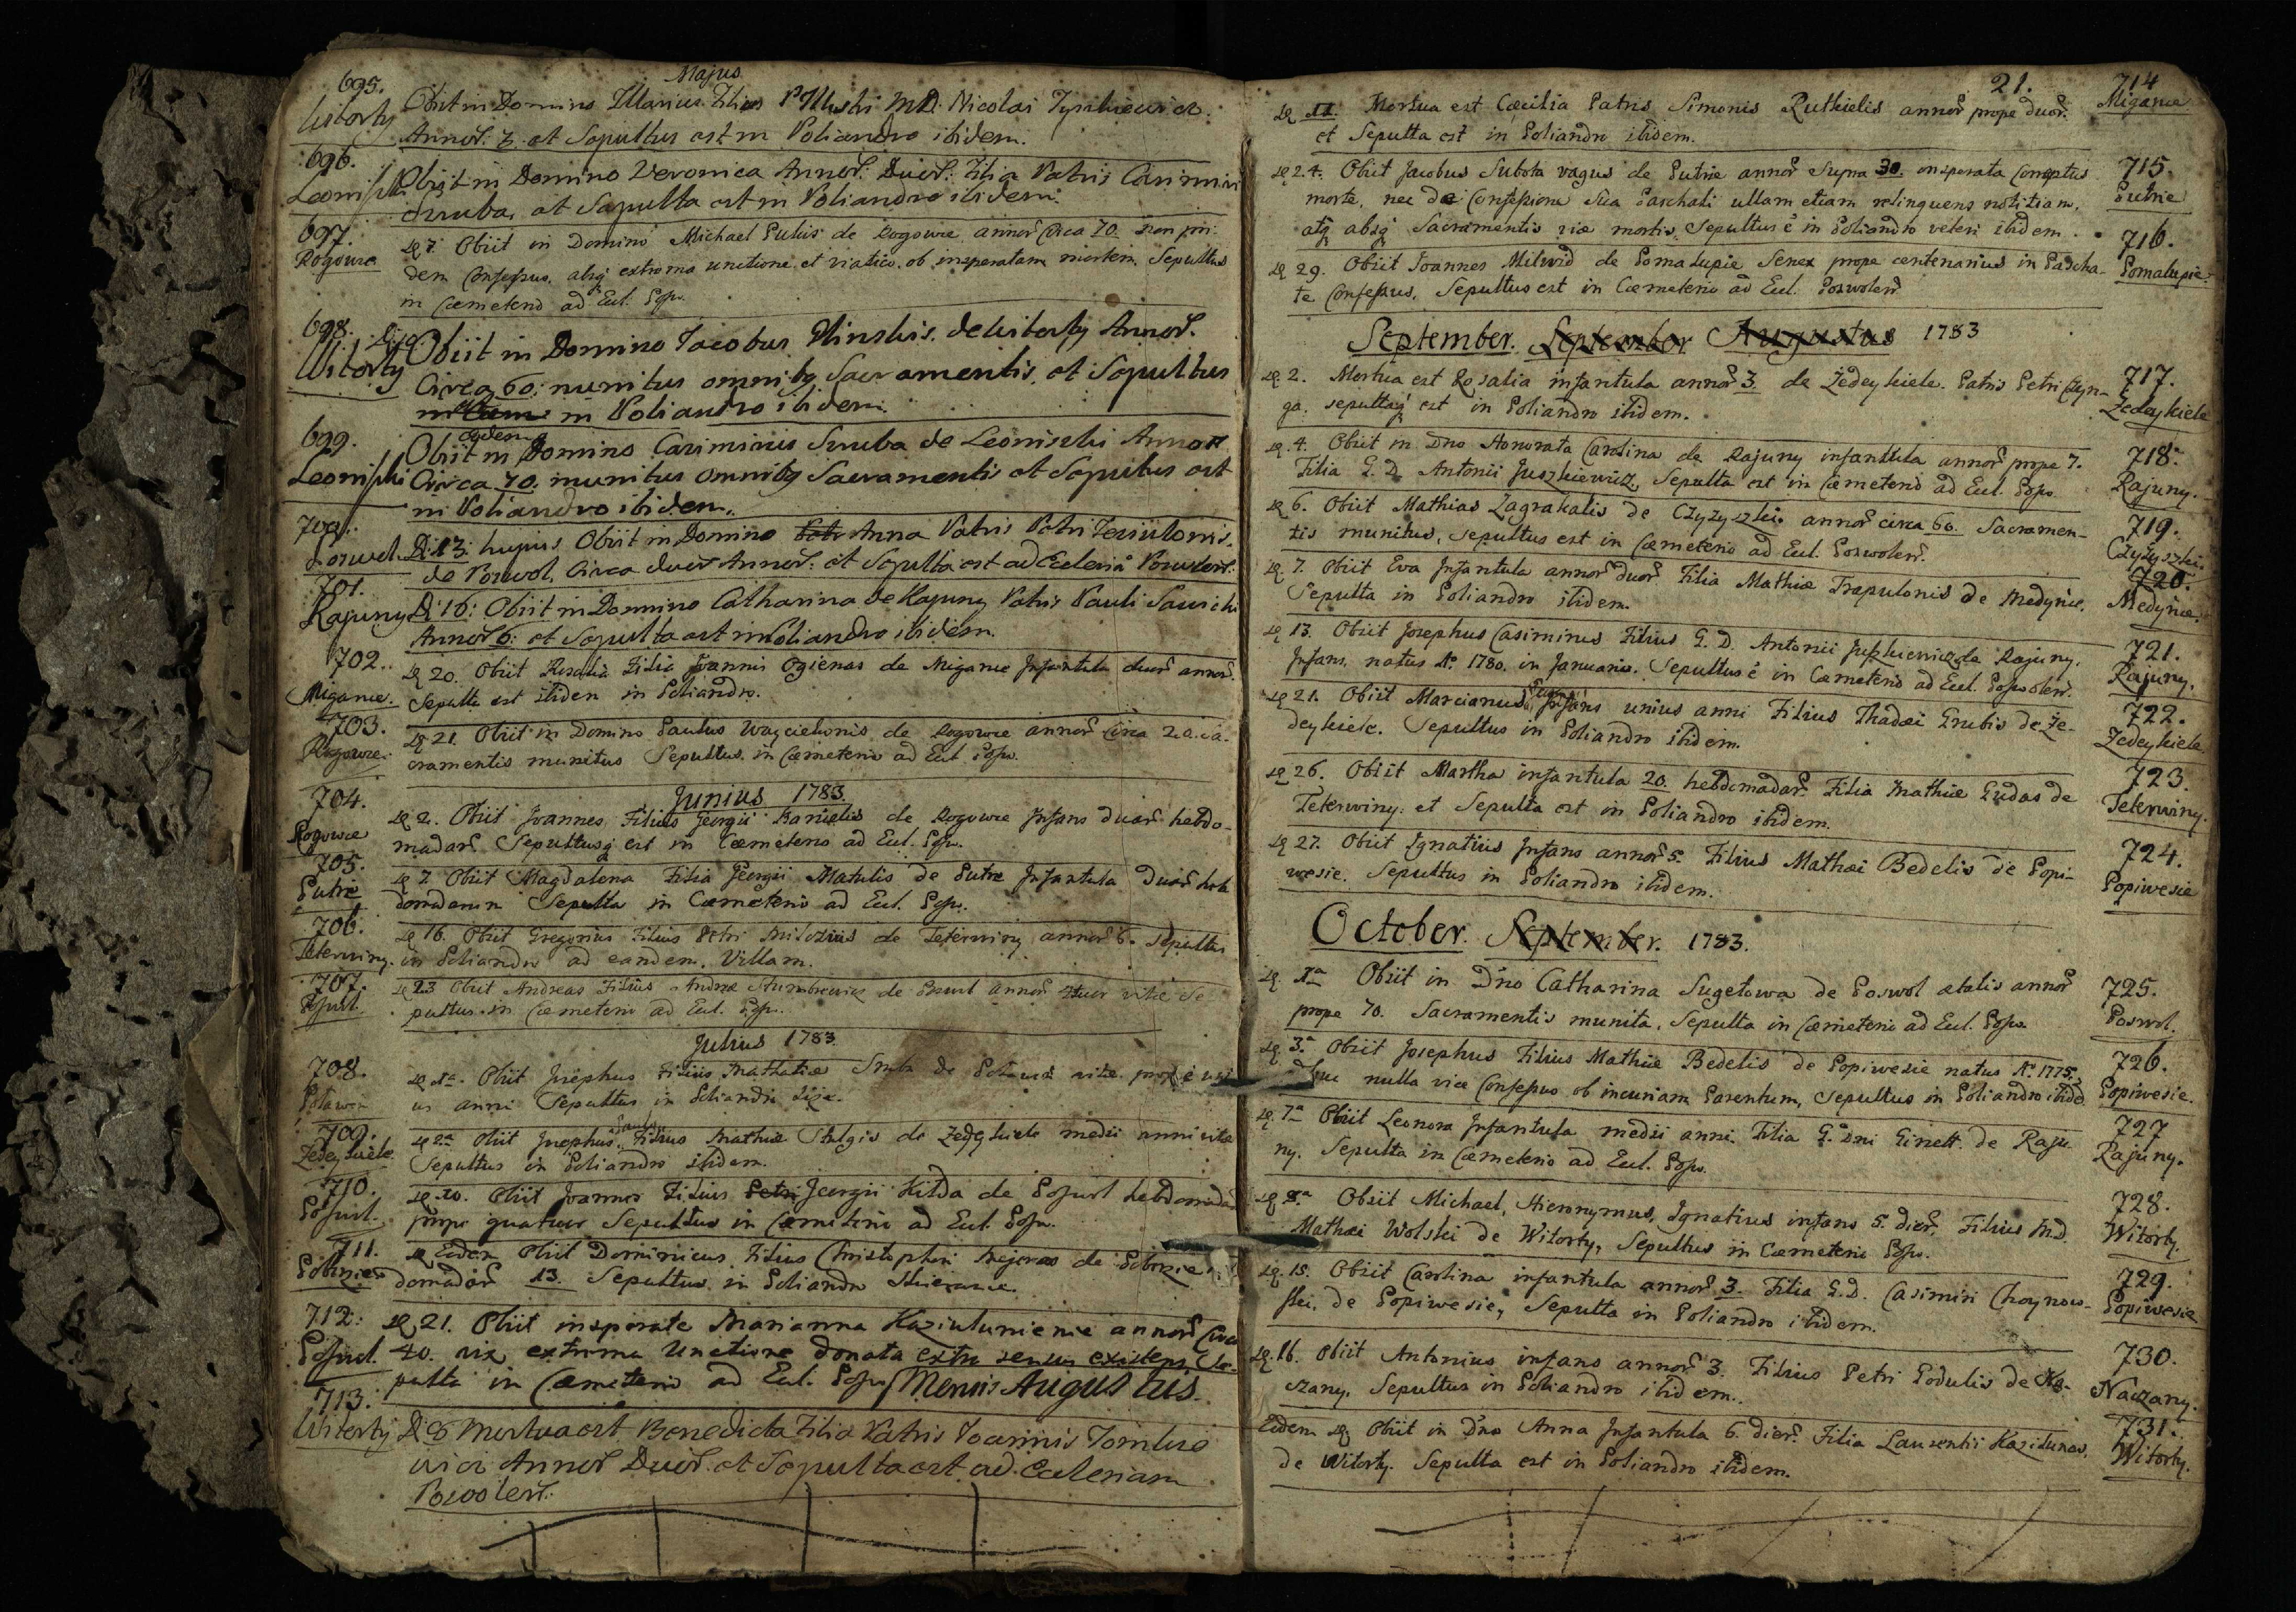 Majus
695.
Witorty
Obiit in Domino Illarius Filius P. Illustri M.D. Nicolai
Annor. 3. et Sepultus est in Poliandro ibidem.
696.
Leoniszki
Obiit in Domino Veronica Annor. Duor. Filia Patris Casimiri
Sruba, et Sepulta est in Poliandro ibidem.
697.
Rogowie
7. Obiit in Domino Michael de Rogowie annor circa 70. non pri-
dem Confessus, absq extrema unctione et viatico, ob insperatam mortem Sepultus
in Cæmeterio ad Eccl. Posw.
698.
Witorty
Obiit in Domino Jacobus de Witorty Annor.
Circa 60: munitus omnibq Sacramentis, et Sepultus
in Poliandro ibidem.
699.
Leoniszki
eadem
Obiit in Domino Casimirus Sruba de Leoniszki Annor
Circa 70. munitus Omnibq Sacramentis et Sepultus est
in Poliandro ibidem.
700.
D. 13. hujus Obiit in Domino Anna Patris Petri
de Poswol, Circa duor Annor. et Sepulta est ad Eccleriã
701.
Rajuny
D. 16: Obiit in Domino Catharina de Rajuny Patris Pauli Sawicki
Annor 6: et Sepulta est in Poliandro ibidem.
702.
Migance.
20. Obiit Rosalia Filia Joannis Ogienas de Migance Infantula duor annor.
Sepulta est ibidem in Poliandro.
703.
Rogowie.
21. Obiit in Domino Paulus de Rogowie annor circa
cramentis munitus Sepultus in Cæmeterio ad Eccl. Posw.
Junius 1783.
704.
Rogowie
2. Obiit Joannes Filius Georgii de Rogowie Infans duar hebdo-
madar. Sepultusq est in Cæmeterio ad Eccl. Posw.
705.
Putrie
7. Obiit Magdalena Filia Georgii Matulis de Putrie Infantula Duar heb
domadarum Sepulta in Cæmeterio ad Eccl. Posw.
706.
Teterwiny.
16. Obiit Gregorius Filius Petri de Teterwiny annor 6. Sepultus
in Poliandro ad eandem Villam.
707.
23 Obiit Andreas Filius Andreæ de annor vitæ Se
pultus in Cæmeterio ad Eccl. Posw.
Julius 1783.
708.
1ª. Obiit Josephus Filius Mathiæ de vitæ prope uni
us anni Sepultus in Poliandro
709.
Zedeykiele
2ª Obiit Josephus Filius Mathiæ Stulgis de Zedeykiele medii anni vitæ
Sepultus in Poliandro ibidem.
710.
10. Obiit Joannes Filius Petri Georgii de hebdomadar
prope quatuor Sepultus in Cæmeterio ad Eccl. Posw.
711.
Eadem Obiit Dominicus Filius Christophori de
domadar 13. Sepultus in Poliandro
712.
21. Obiit insperate Marianna annor Circa
40. vix extrema Unctione donata extra sensus existens, Se-
pulta in Cæmeterio ad Eccl. Posw. Mensis Augustus.
713.
Witorty
D. 8 Mortua est Benedicta Filia Patris Joannis
Annor Duor. et Sepulta est ad Ecclesiam
21.
11. Mortua est Cæcilia Patris Simonis Rutkielis annor prope duor.
et Sepulta est in Poliandro ibidem.
714
Migance
24. Obiit Jacobus Subota vagus de Putrie annor supra 30. insperata Correptus
morte, nec de Confessione Sua Paschali ullam etiam relinquens notitiam,
atq absq Sacramentis viæ mortis, Sepultus ẽ in Poliandro veteri ibidem.
715.
Putrie
29. Obiit Joannes Milwid de Pomalupie Senex prope centenarius in Pascha-
te Confessus, Sepultus est in Cæmeterio ad Eccl. Poswolen.
716.
Pomalupie.
September. September Augustus 1783
2. Mortua est Rosalia infantula annor 3. de Żedeykiele. Patris Petri Czyn-
ga. sepultaq est in Poliandro ibidem.
717.
Zedeykiele
4. Obiit in Dno Honorata Carolina de Rajuny infantula annor prope 7.
Filia G. D. Antonii Juszkiewicz, Sepulta est in Cæmeterio ad Eccl. Posw.
718.
Rajuny.
6. Obiit Mathias Zagrakalis de Czyżyszki annor circa 60. Sacramen-
tis munitus, sepultus est in Cæmeterio ad Eccl. Poswolen.
719.
Czyżyszki
7. Obiit Eva Infantula annor duor Filia Mathiæ Trapulonis de Medynie.
Sepulta in Poliandro ibidem.
720.
Medynie.
13. Obiit Josephus Casimirus Filius G. D. Antonii Juszkiewicz de Rajuny.
Infans, natus Aº. 1780. in Januario. Sepultus ẽ in Cæmeterio ad Eccl. Poswolen.
721.
Rajuny.
21. Obiit Marcianus Infans unius anni Filius Thadæi Grubis de Że-
deykiele. Sepultus in Poliandro ibidem.
722.
Zedeykiele
26. Obiit Martha infantula 20. hebdomadar. Filia Mathiæ Gudas de
Teterwiny. et Sepulta est in Poliandro ibidem.
723.
Teterwiny.
27. Obiit Ignatius Infans annor 5. Filius Mathæi Bedelis de Popi-
wesie. Sepultus in Poliandro ibidem.
724.
Popiwesie
October. September. 1783.
1ª Obiit in Dno Catharina Sugetowa de Poswol ætatis annor
prope 70. Sacramentis munita. Sepulta in Cæmeterio ad Eccl. Posw.
725.
Poswol.
3ª. Obiit Josephus Filius Mathiæ Bedelis de Popiwesie natus Aº. 1775.
nulla vice Confessus ob incuriam Parentum, Sepultus in Poliandro ibid.
726.
Popiwesie.
7ª Obiit Leonora Infantula medii anni. Filia G. Dni Ginett de Raju
ny. Sepulta in Cæmeterio ad Eccl. Posw.
727
Rajuny.
8ª. Obiit Michael, Hieronymus, Ignatius infans 5. dier, Filius M.D.
Mathæi Wolski de Witorty, Sepultus in Cæmeterio Posw.
728.
Witorty.
15. Obiit Carolina infantula annor 3. Filia G.D. Casimiri Choynow-
ski, de Popiwesie, Sepulta in Poliandro ibidem.
729.
Popiwesie
16. Obiit Antonius infans annor 3. Filius Petri Godulis de Na-
czany. Sepultus in Poliandro ibidem.
730.
Naczany.
Eadem Obiit in Dno Anna Infantula 6. dier. Filia Laurentii Kazilunas,
de Witorty. Sepulta est in Poliandro ibidem.
731.
Witorty.